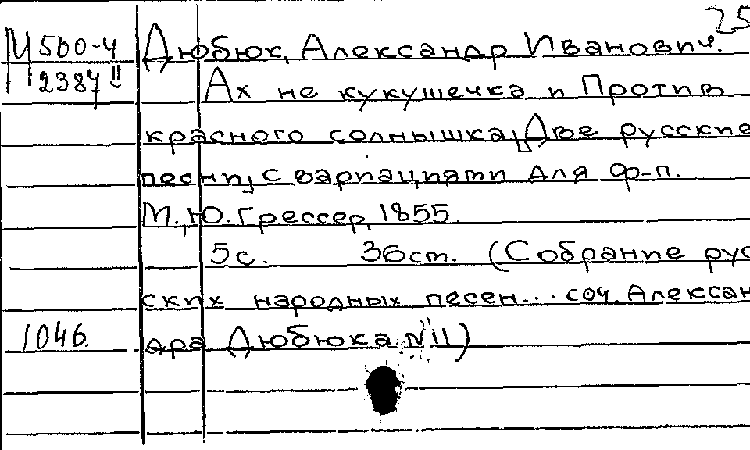 25
М 500-4 Дюбюк, Александр Иванович.
2387 II Ах не кукушечка и Против
красного солнышка, Две русские
песни, с вариациями для ф-п.
М., Ю. Грессер, 1855.
5с. 36см. (Собрание рус
ских народных песен... соч. Александ
1046. дра Дюбюка N 11)